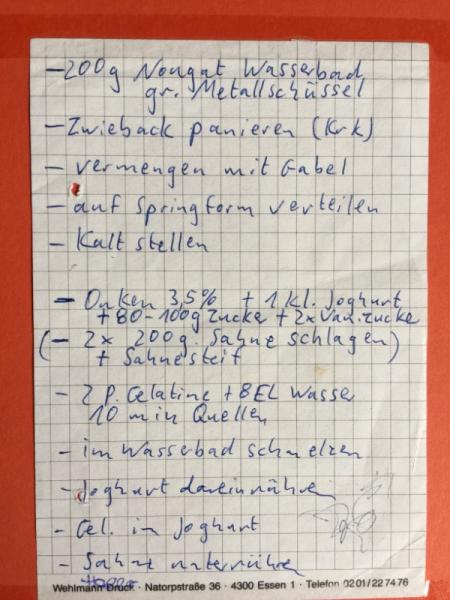 - 200g Nougat Wasserbad
gr. Metallschüssel
- Zwieback panieren (Krk)
- vermengen mit Gabel
- auf Springform verteilen
- Kalt stellen
- Onken 3,5% + 1 kl. Joghurt
+ 80-100g Zucker + 2x Van.zucker
(- 2x 200g Sahne schlagen)
+ Sahnesteif
- 2 P. Gelatine + 8EL Wasser
10 min Quellen
- im Wasserbad schmelzen
- Joghurt dareinrühren
- Gel. in Joghurt
- Sahne unterrühren
Wehlmann Druck · Natorpstraße 36 · 4300 Essen 1 · Telefon 02 01/22 74 76